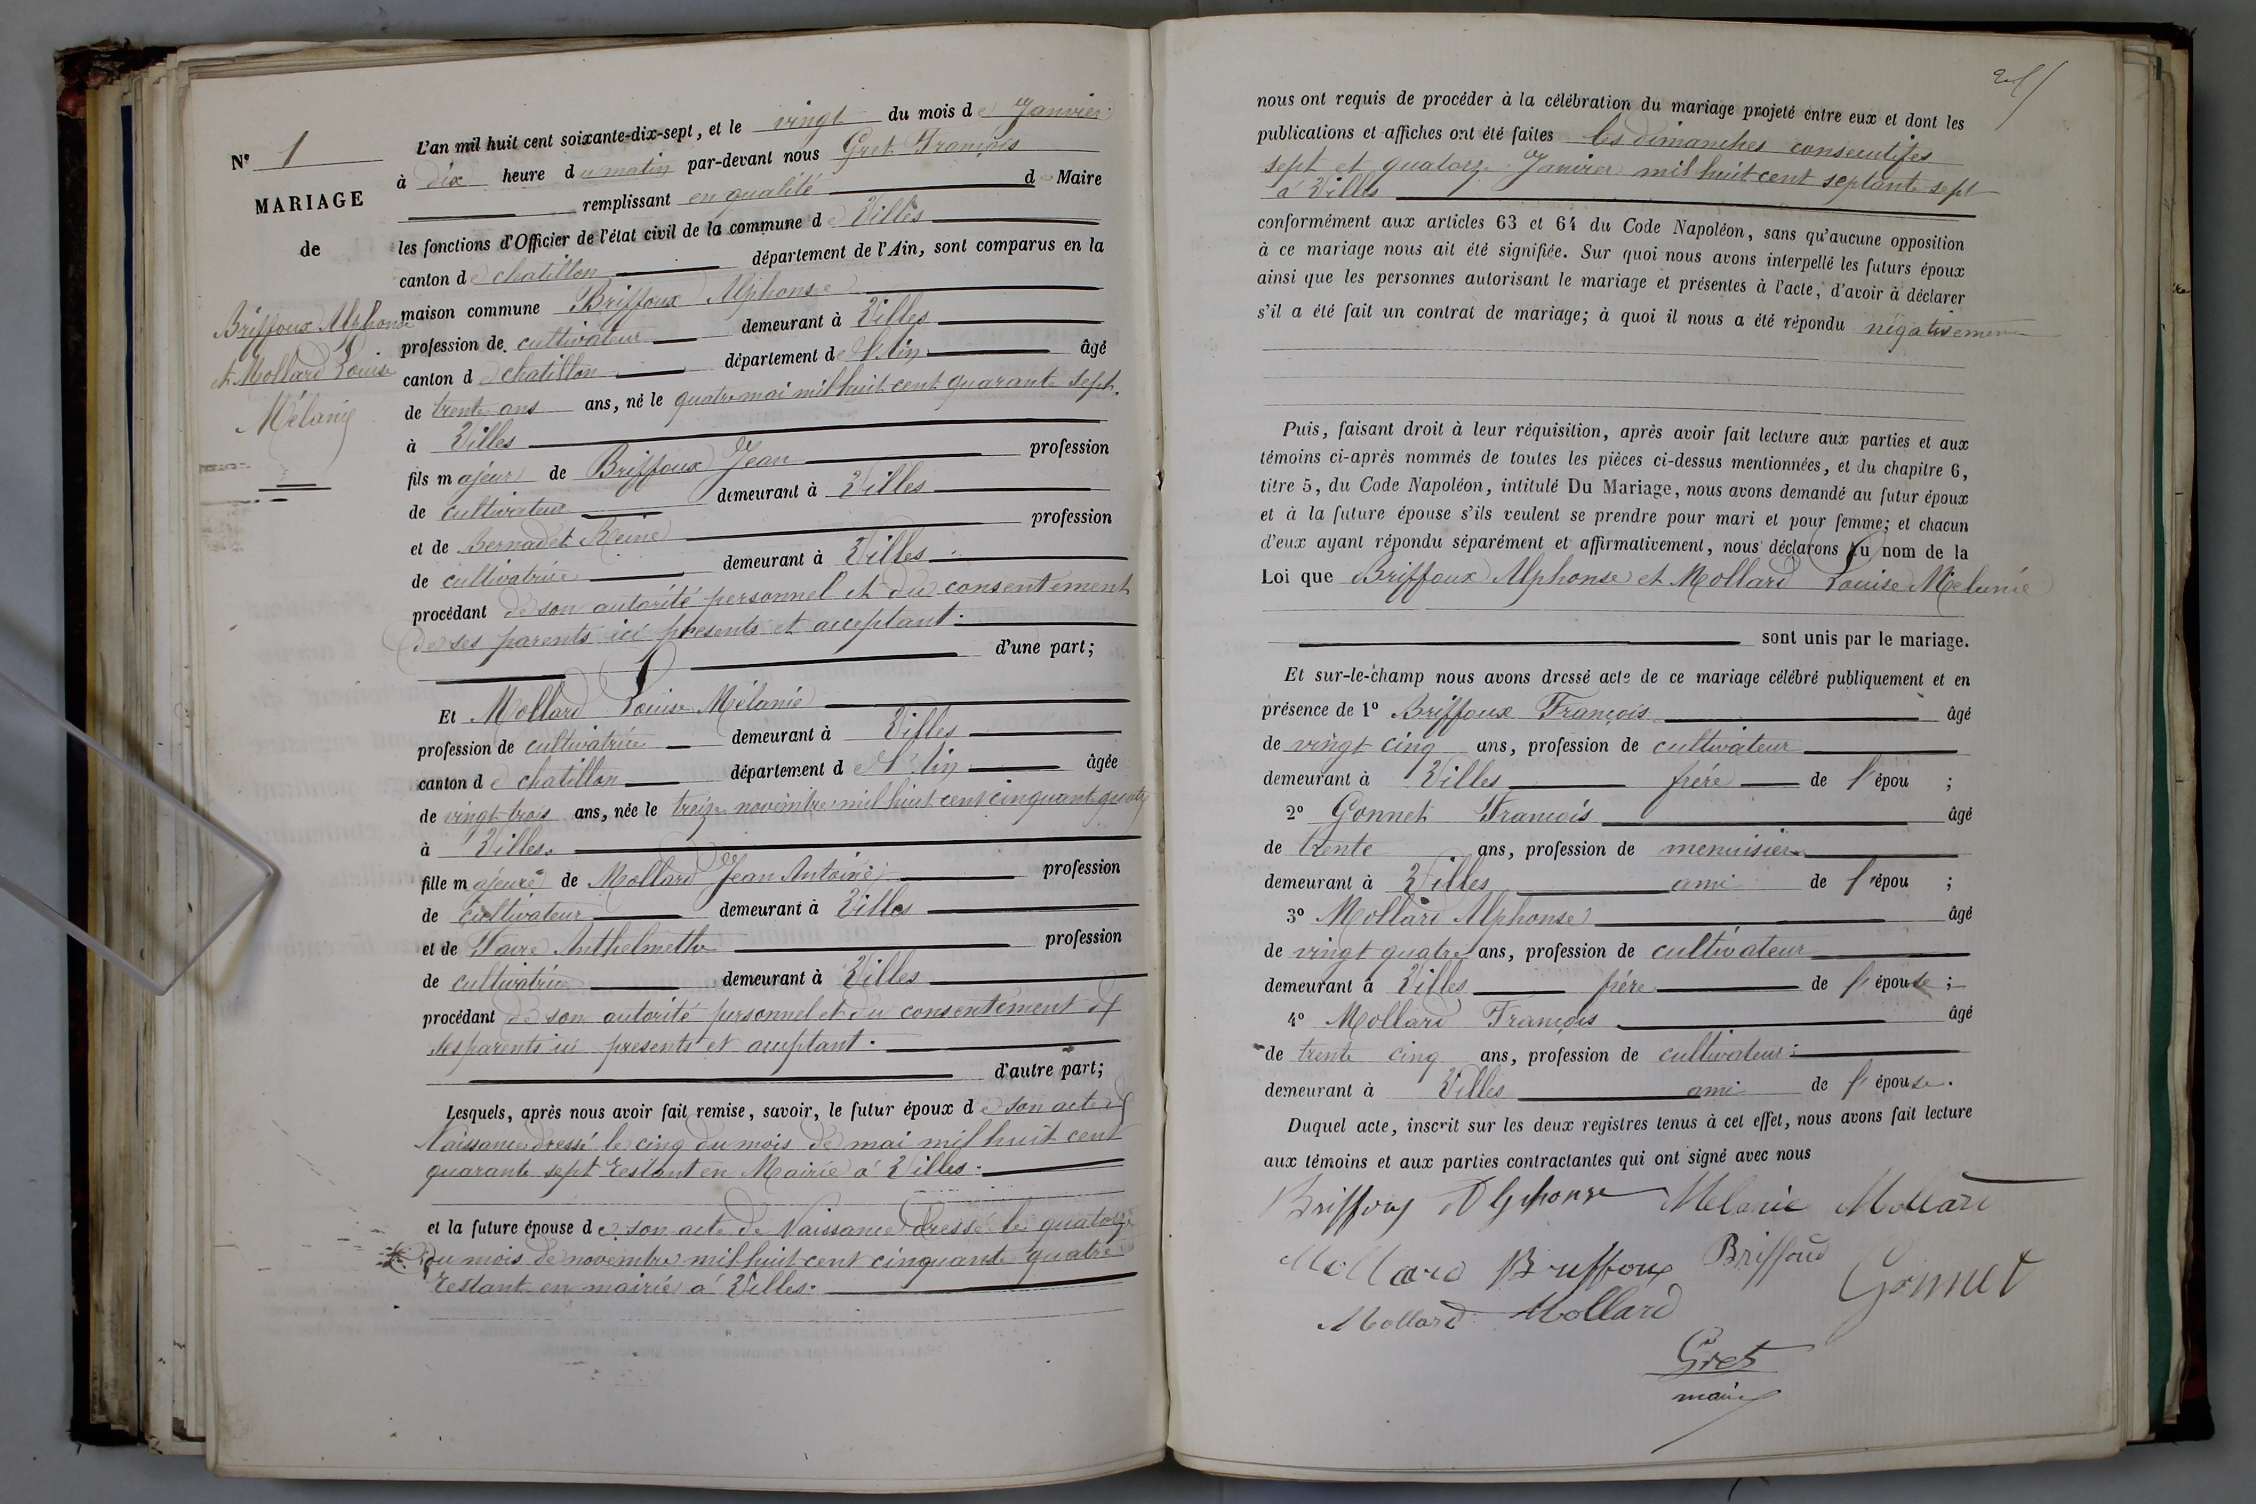 N° 1
MARIAGE
de
Briffoux Alphonse
et Mollard Louise
Mélanie
L'an mil huit cent soixante-dix-sept, et le vingt du mois de Janvier
à dix heure du matin par-devant nous Gret François
remplissant en qualité d Maire
les fonctions d'Officier de l'état civil de la commune de Villes
canton de chatillon département de l'Ain, sont comparus en la
maison commune Briffoux Alphonse
profession de cultivateur demeurant à Villes
canton de chatillon département de l'Ain âgé
de trente ans ans, né le quatre mai mil huit cent quarante sept.
à Villes
fils majeur de Briffoux Jean profession
de cultivateur demeurant à Villes
et de Bernadet Reine profession
de cultivatrice demeurant à Villes
procédant de son autorité personnel et du consentement
de ses parents ici presents et acceptant.
d'une part;
Et Mollard Louise Mélanie
profession de cultivatrice demeurant à Villes
canton de chatillon département de l'Ain âgée
de vingt trois ans, née le treize novembre mil huit cent cinquante quatre
à Villes.
fille majeure de Mollard Jean Antoine profession
de cultivateur demeurant à Villes
et de Favre Anthelmette profession
de cultivatrice demeurant à Villes
procédant de son autorité personnel et du consentement de
ses parents ici presents et acceptant.
d'autre part;
Lesquels, après nous avoir fait remise, savoir, le futur époux de son acte de
Naissance dressé le cinq du mois de mai mil huit cent
quarante sept restant en Mairie à Villes.
et la future épouse de son acte de Naissance dressé le quatorze
du mois de novembre mil huit cent cinquante quatre
restant en mairie à Villes.
nous ont requis de procéder à la célébration du mariage projeté entre eux et dont les
publications et affiches ont été faites les dimanches consecutifes
sept et quatorze Janvier mil huit cent septante sept
à Villes
conformément aux articles 63 et 64 du Code Napoléon, sans qu'aucune opposition
à ce mariage nous ait été signifiée. Sur quoi nous avons interpellé les futurs époux
ainsi que les personnes autorisant le mariage et présentes à l'acte, d'avoir à déclarer
s'il a été fait un contrat de mariage; à quoi il nous a été répondu négativement
Puis, faisant droit à leur réquisition, après avoir fait lecture aux parties et aux
témoins ci-après nommés de toutes les pièces ci-dessus mentionnées, et du chapitre 6,
titre 5, du Code Napoléon, intitulé Du Mariage, nous avons demandé au futur époux
et à la future épouse s'ils veulent se prendre pour mari et pour femme; et chacun
d'eux ayant répondu séparément et affirmativement, nous déclarons au nom de la
Loi que Briffoux Alphonse et Mollard Louise Melanie
sont unis par le mariage.
Et sur-le-champ nous avons dressé acte de ce mariage célébré publiquement et en
présence de 1° Briffoux François âgé
de vingt cinq ans, profession de cultivateur
demeurant à Villes frére de l'épou ;
2° Gonnet François âgé
de trente ans, profession de menuisier
demeurant à Villes ami de l'épou ;
3° Mollard Alphonse âgé
de vingt quatre ans, profession de cultivateur
demeurant à Villes frére de l'épouse ;
4° Mollard François âgé
de trente cinq ans, profession de cultivateur
demeurant à Villes ami de l'épouse.
Duquel acte, inscrit sur les deux registres tenus à cet effet, nous avons fait lecture
aux témoins et aux parties contractantes qui ont signé avec nous
Briffoux Alphonse Melanie Mollard
Mollard Briffoux Briffoud Gonnet
Mollard Mollard
Gret
maire